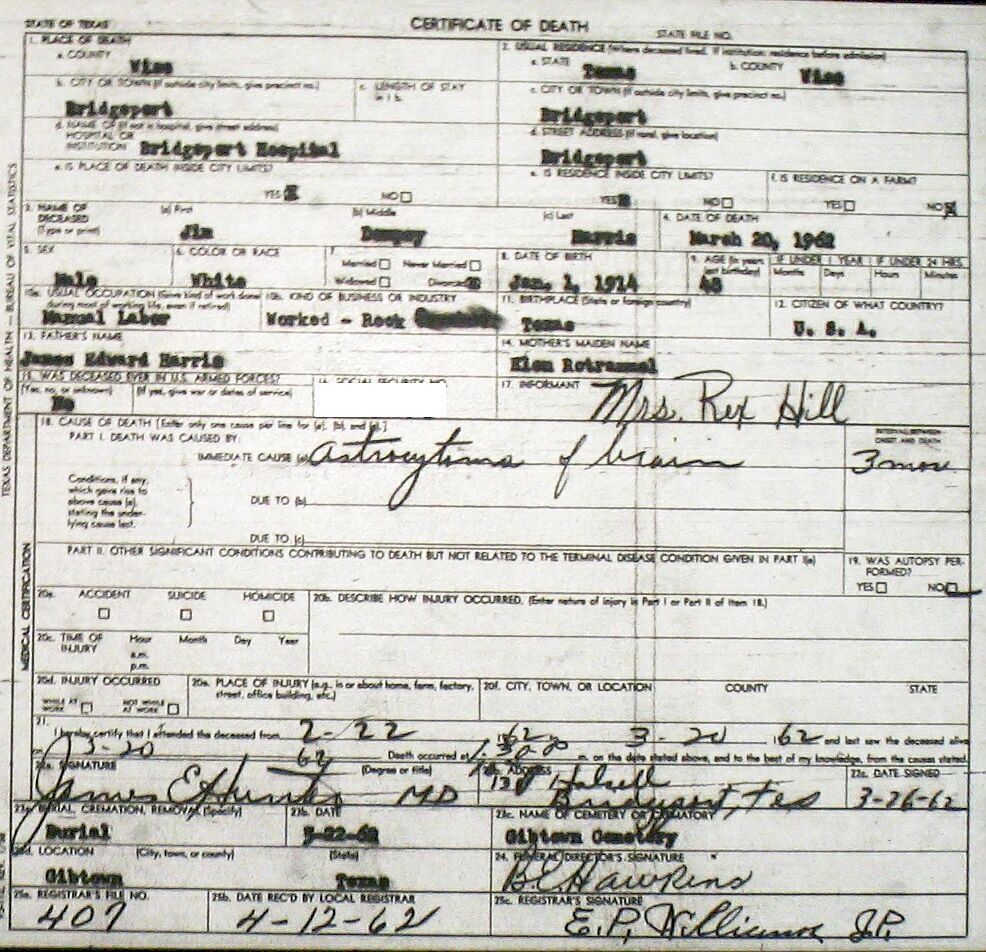 STATE OF TEXAS
CERTIFICATE OF DEATH
STATE FILE NO.
1. PLACE OF DEATH
a. COUNTY
Wise
2. USUAL RESIDENCE (Where deceased lived. If institution: residence before admission)
a. STATE
Texas
b. COUNTY
Wise
b. CITY OR TOWN (If outside city limits, give precinct no.)
Bridgeport
c. LENGTH OF STAY
in 1 b.
c. CITY OR TOWN (If outside city limits, give precinct no.)
Bridgeport
d. NAME OF (If not in hospital, give street address)
HOSPITAL OR
INSTITUTION Bridgeport Hospital
d. STREET ADDRESS (If rural, give location)
Bridgeport
e. IS PLACE OF DEATH INSIDE CITY LIMITS?
YES X NO
e. IS RESIDENCE INSIDE CITY LIMITS?
YES X NO
f. IS RESIDENCE ON A FARM?
YES NO X
3. NAME OF
DECEASED
(Type or print)
(a) First
Jim
(b) Middle
Dempsy
(c) Last
Harris
4. DATE OF DEATH
March 20, 1962
5. SEX
Male
6. COLOR OR RACE
White
7.
Married Never Married
Widowed Divorced X
8. DATE OF BIRTH
Jan. 1, 1914
9. AGE (In years
last birthday)
48
IF UNDER 1 YEAR
Months Days
IF UNDER 24 HRS.
Hours Minutes
10a. USUAL OCCUPATION (Give kind of work done
during most of working life, even if retired)
Manual Labor
10b. KIND OF BUSINESS OR INDUSTRY
Worked - Rock
11. BIRTHPLACE (State or foreign country)
Texas
12. CITIZEN OF WHAT COUNTRY?
U. S. A.
13. FATHER'S NAME
James Edward Harris
14. MOTHER'S MAIDEN NAME
Elen Rotrammel
15. WAS DECEASED EVER IN U.S. ARMED FORCES?
(Yes, no, or unknown) (If yes, give war or dates of service)
No
16. SOCIAL SECURITY NO.
17. INFORMANT
Mrs. Rex Hill
18. CAUSE OF DEATH [Enter only one cause per line for (a), (b), and (c).]
PART I. DEATH WAS CAUSED BY:
INTERVAL BETWEEN
ONSET AND DEATH
IMMEDIATE CAUSE (a) astrocytoma of brain
3 mos
Conditions, if any,
which gave rise to
above cause (a),
stating the under-
lying cause last.
DUE TO (b)
DUE TO (c)
PART II. OTHER SIGNIFICANT CONDITIONS CONTRIBUTING TO DEATH BUT NOT RELATED TO THE TERMINAL DISEASE CONDITION GIVEN IN PART I(a)
19. WAS AUTOPSY PER-
FORMED?
YES NO
20a. ACCIDENT SUICIDE HOMICIDE
20b. DESCRIBE HOW INJURY OCCURRED. (Enter nature of injury in Part I or Part II of Item 18.)
20c. TIME OF
INJURY
Hour Month Day Year
a.m.
p.m.
20d. INJURY OCCURRED
WHILE AT
WORK
NOT WHILE
AT WORK
20e. PLACE OF INJURY (e.g., in or about home, farm, factory,
street, office building, etc.)
20f. CITY, TOWN, OR LOCATION COUNTY STATE
21.
I hereby certify that I attended the deceased from 2-22 1962 3-20 62 and last saw the deceased alive
on 3-20 62 Death occurred at m. on the date stated above, and to the best of my knowledge, from the causes stated.
22a. SIGNATURE
(Degree or title)
James E Hunter MD
22b. ADDRESS
Halsell
Bridgeport Tex
22c. DATE SIGNED
3-26-62
23a. BURIAL, CREMATION, REMOVAL (Specify)
Burial
23b. DATE
3-22-62
23c. NAME OF CEMETERY OR CREMATORY
Gibtown Cemetery
23d. LOCATION (City, town, or county) (State)
Gibtown Texas
24. FUNERAL DIRECTOR'S SIGNATURE
B.C. Hawkins
25a. REGISTRAR'S FILE NO.
407
25b. DATE REC'D BY LOCAL REGISTRAR
4-12-62
25c. REGISTRAR'S SIGNATURE
E.P. Williams J.P.
MEDICAL CERTIFICATION
TEXAS DEPARTMENT OF HEALTH — BUREAU OF VITAL STATISTICS